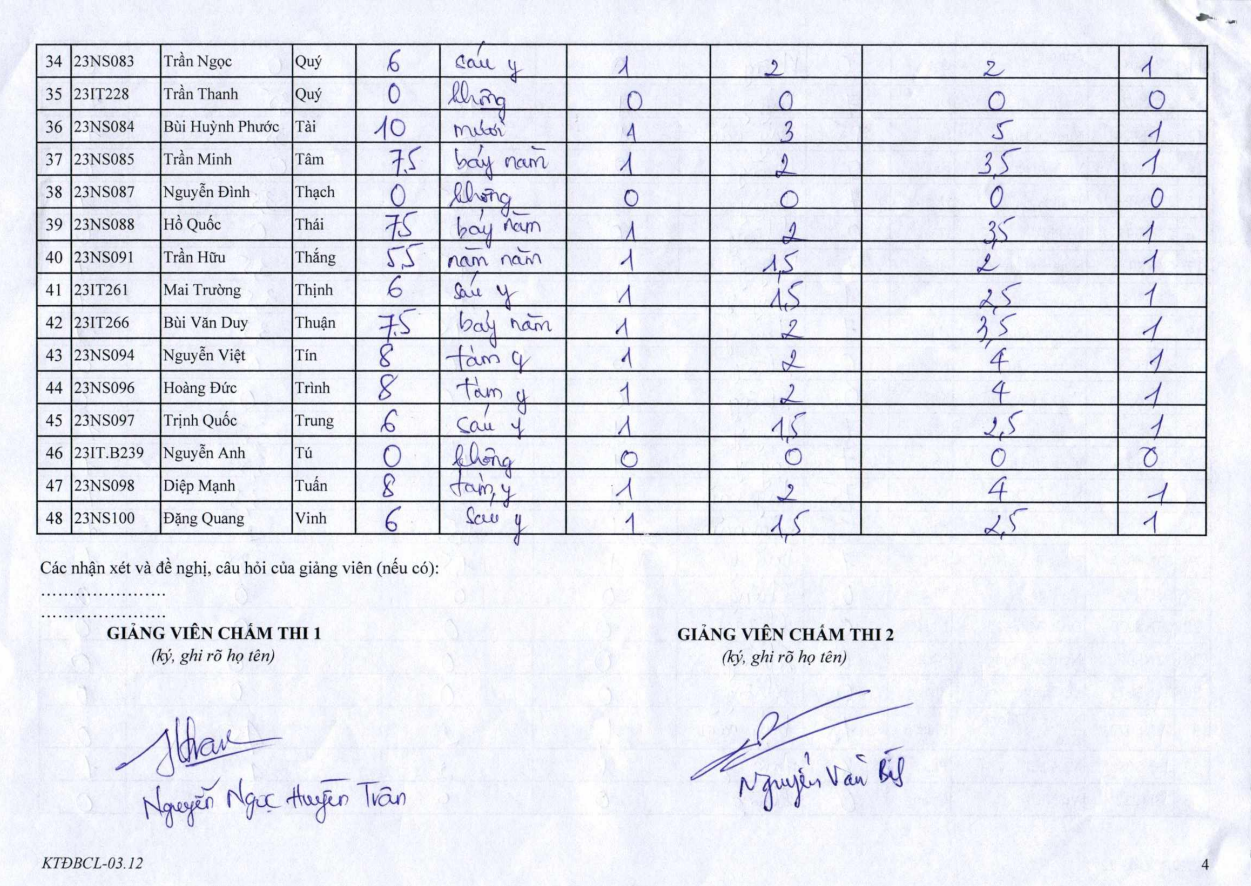 34 23NS083 Trần Ngọc Quý 6 sáu y 1 2 2 1
35 23IT228 Trần Thanh Quý 0 không 0 0 0 0
36 23NS084 Bùi Huỳnh Phước Tài 10 mười 1 3 5 1
37 23NS085 Trần Minh Tâm 7,5 bảy năm 1 2 3,5 1
38 23NS087 Nguyễn Đình Thạch 0 không 0 0 0 0
39 23NS088 Hồ Quốc Thái 7,5 bảy năm 1 2 3,5 1
40 23NS091 Trần Hữu Thắng 5,5 năm năm 1 1,5 2 1
41 23IT261 Mai Trường Thịnh 6 sáu y 1 1,5 2,5 1
42 23IT266 Bùi Văn Duy Thuận 7,5 bảy năm 1 2 3,5 1
43 23NS094 Nguyễn Việt Tín 8 tám y 1 2 4 1
44 23NS096 Hoàng Đức Trình 8 tám y 1 2 4 1
45 23NS097 Trịnh Quốc Trung 6 sáu y 1 1,5 2,5 1
46 23IT.B239 Nguyễn Anh Tú 0 không 0 0 0 0
47 23NS098 Diệp Mạnh Tuấn 8 tám y 1 2 4 1
48 23NS100 Đặng Quang Vinh 6 sáu y 1 1,5 2,5 1
Các nhận xét và đề nghị, câu hỏi của giảng viên (nếu có):
........................
........................
GIẢNG VIÊN CHẤM THI 1 GIẢNG VIÊN CHẤM THI 2
(ký, ghi rõ họ tên) (ký, ghi rõ họ tên)
Nguyễn Ngọc Huyền Trân Nguyễn Văn
KTĐBCL-03.12 4